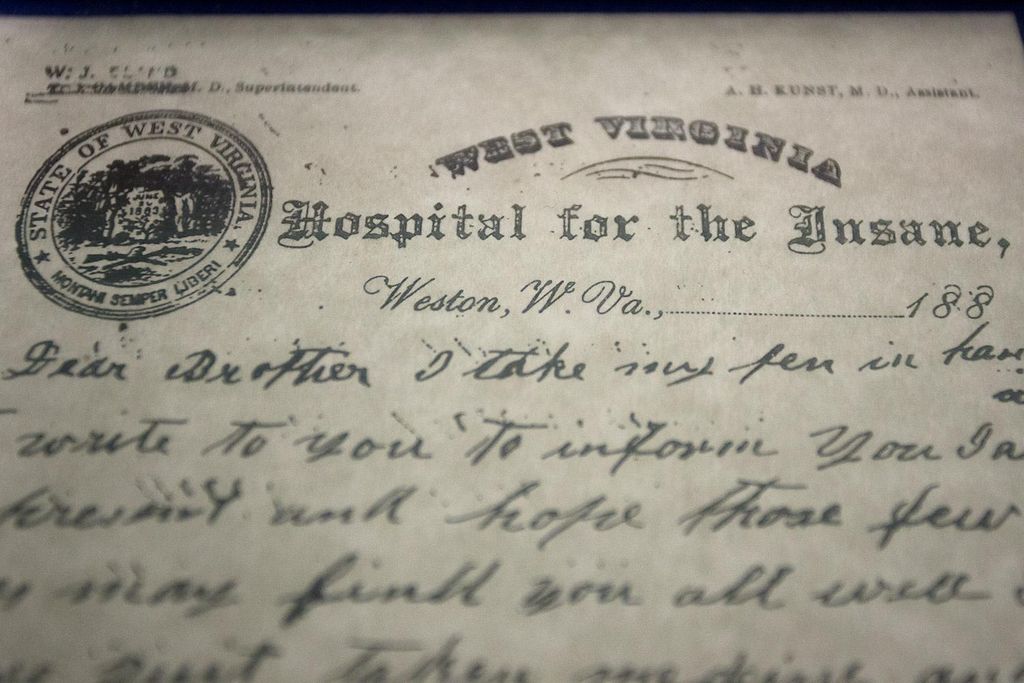 W. J. BLAND
M. D., Superintendent.
A. H. KUNST, M. D., Assistant.
STATE OF WEST VIRGINIA.
JUNE
1863
MONTANI SEMPER LIBERI
WEST VIRGINIA
Hospital for the Insane,
Weston, W. Va., 188
Dear Brother I take my pen in han
write to you to inform You I a
present and hope those few
may find you all well
just taken